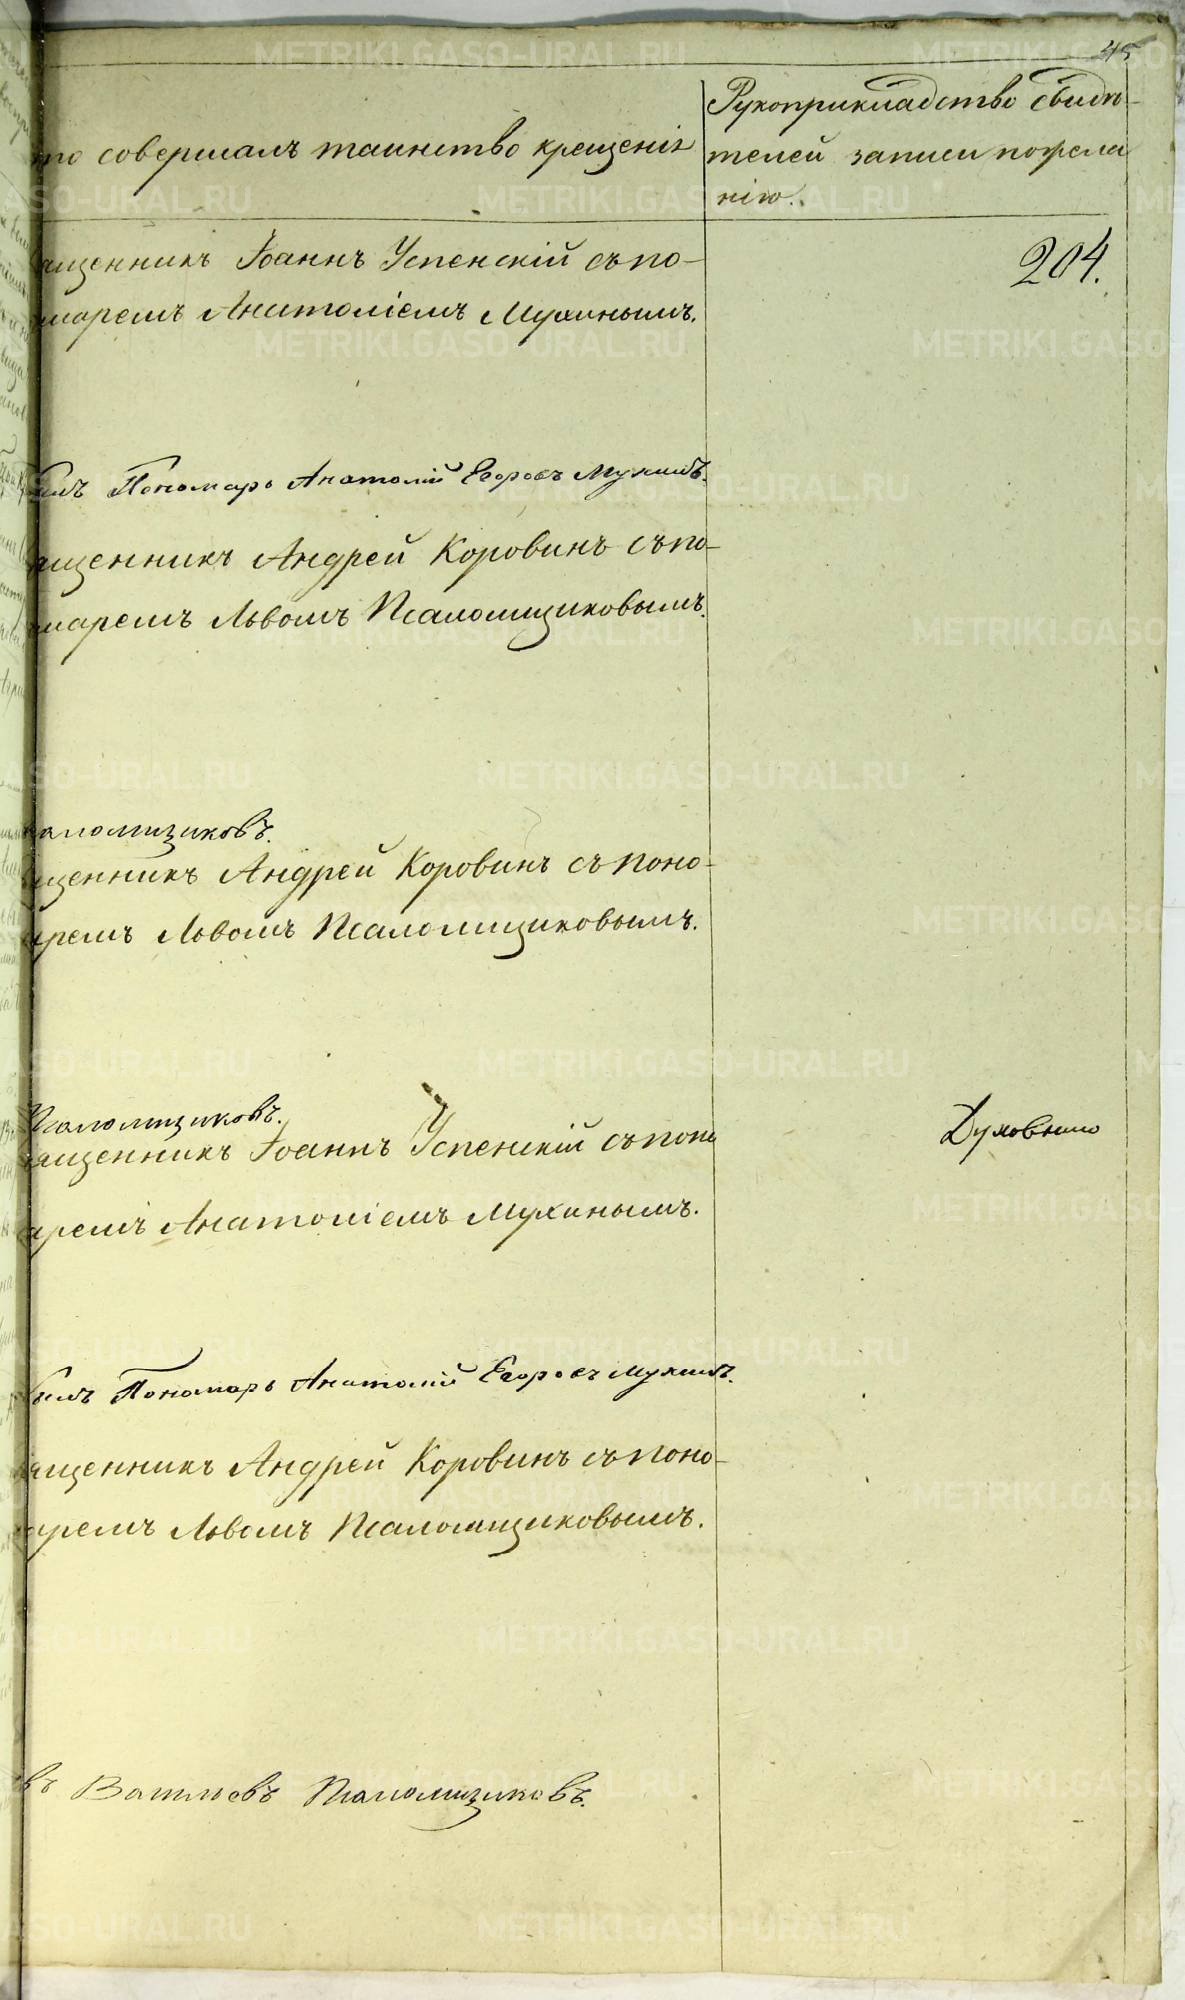 45
то совершалъ таинство крещенія
Рукоприкладство свидѣ-
телей записи по жела
нію.
204.
ященникъ Іоаннъ Успенскій съ по-
маремъ Анатоліемъ Мухинымъ.
былъ Пономарь Анатолій Егоровъ Мухинъ.
ященникъ Андрей Коровинъ съ по-
маремъ Львомъ Псаломщиковымъ.
аломщиковъ.
щенникъ Андрей Коровинъ съ поно-
аремъ Львомъ Псаломщиковымъ.
Псаломщиковъ.
ященникъ Іоаннъ Успенскій съ поно
Духовнаго
аремъ Анатоліемъ Мухинымъ.
былъ Пономарь Анатолій Егоровъ Мухинъ.
ященникъ Андрей Коровинъ съ поно-
аремъ Львомъ Псаломщиковымъ.
въ Васильевъ Псаломщиковъ.
METRIKI.GASO-URAL.RU